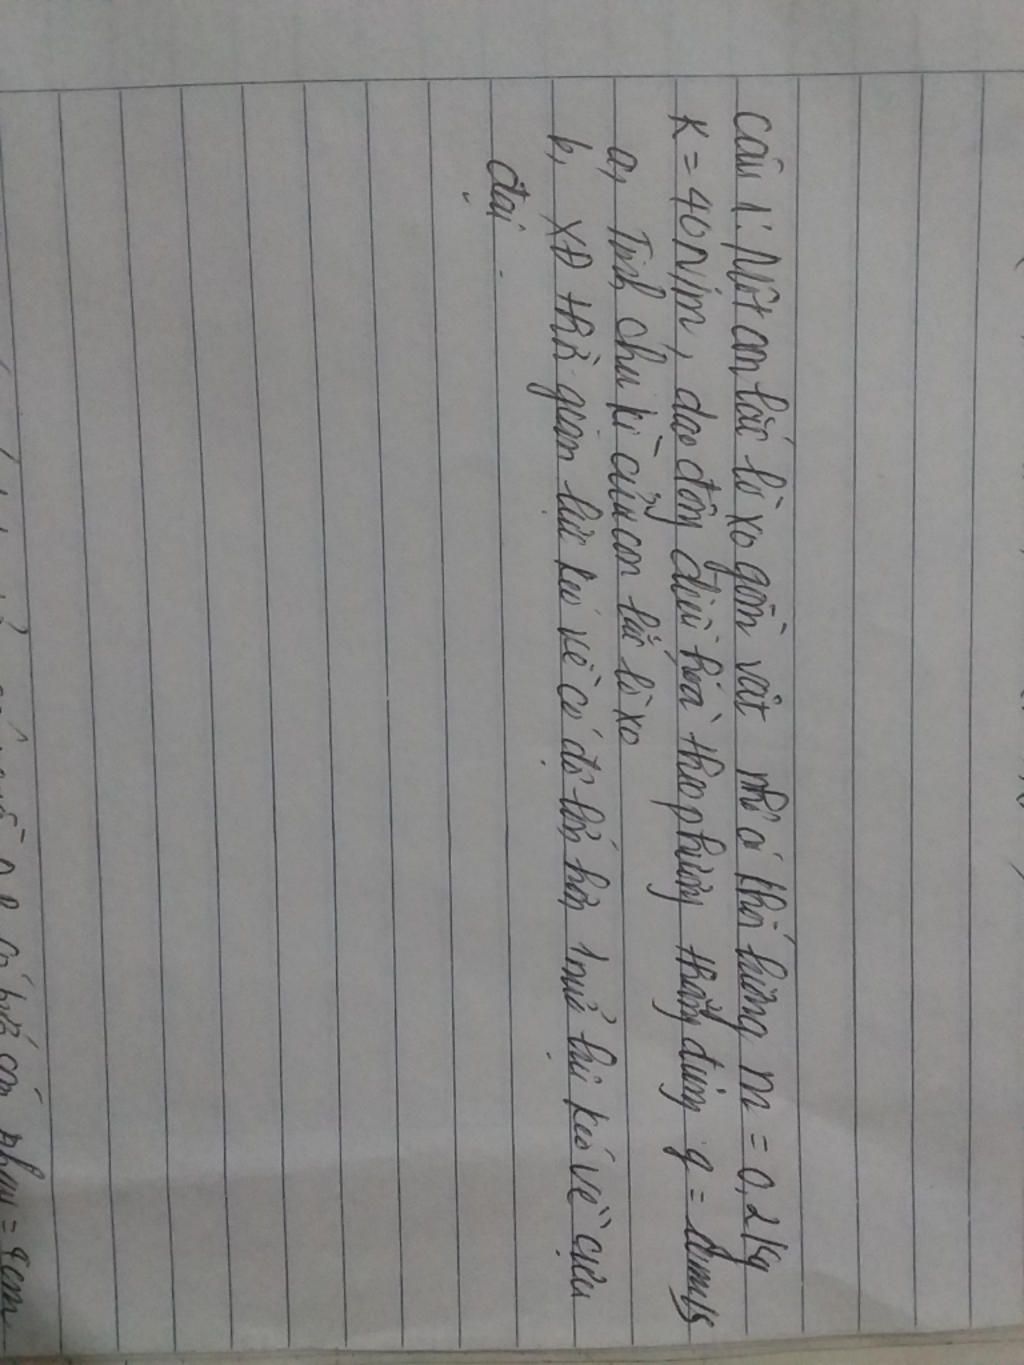 Câu 1: Một con lắc lò xo gồm vật nhỏ có khối lượng m = 0,2 kg
K = 40N/m, dao động điều hòa theo phương thẳng đứng g =
a, Tính chu kì của con lắc lò xo
b, XĐ thời gian lực kéo về có độ lớn hơn 1 nửa lực kéo về cực
đại.